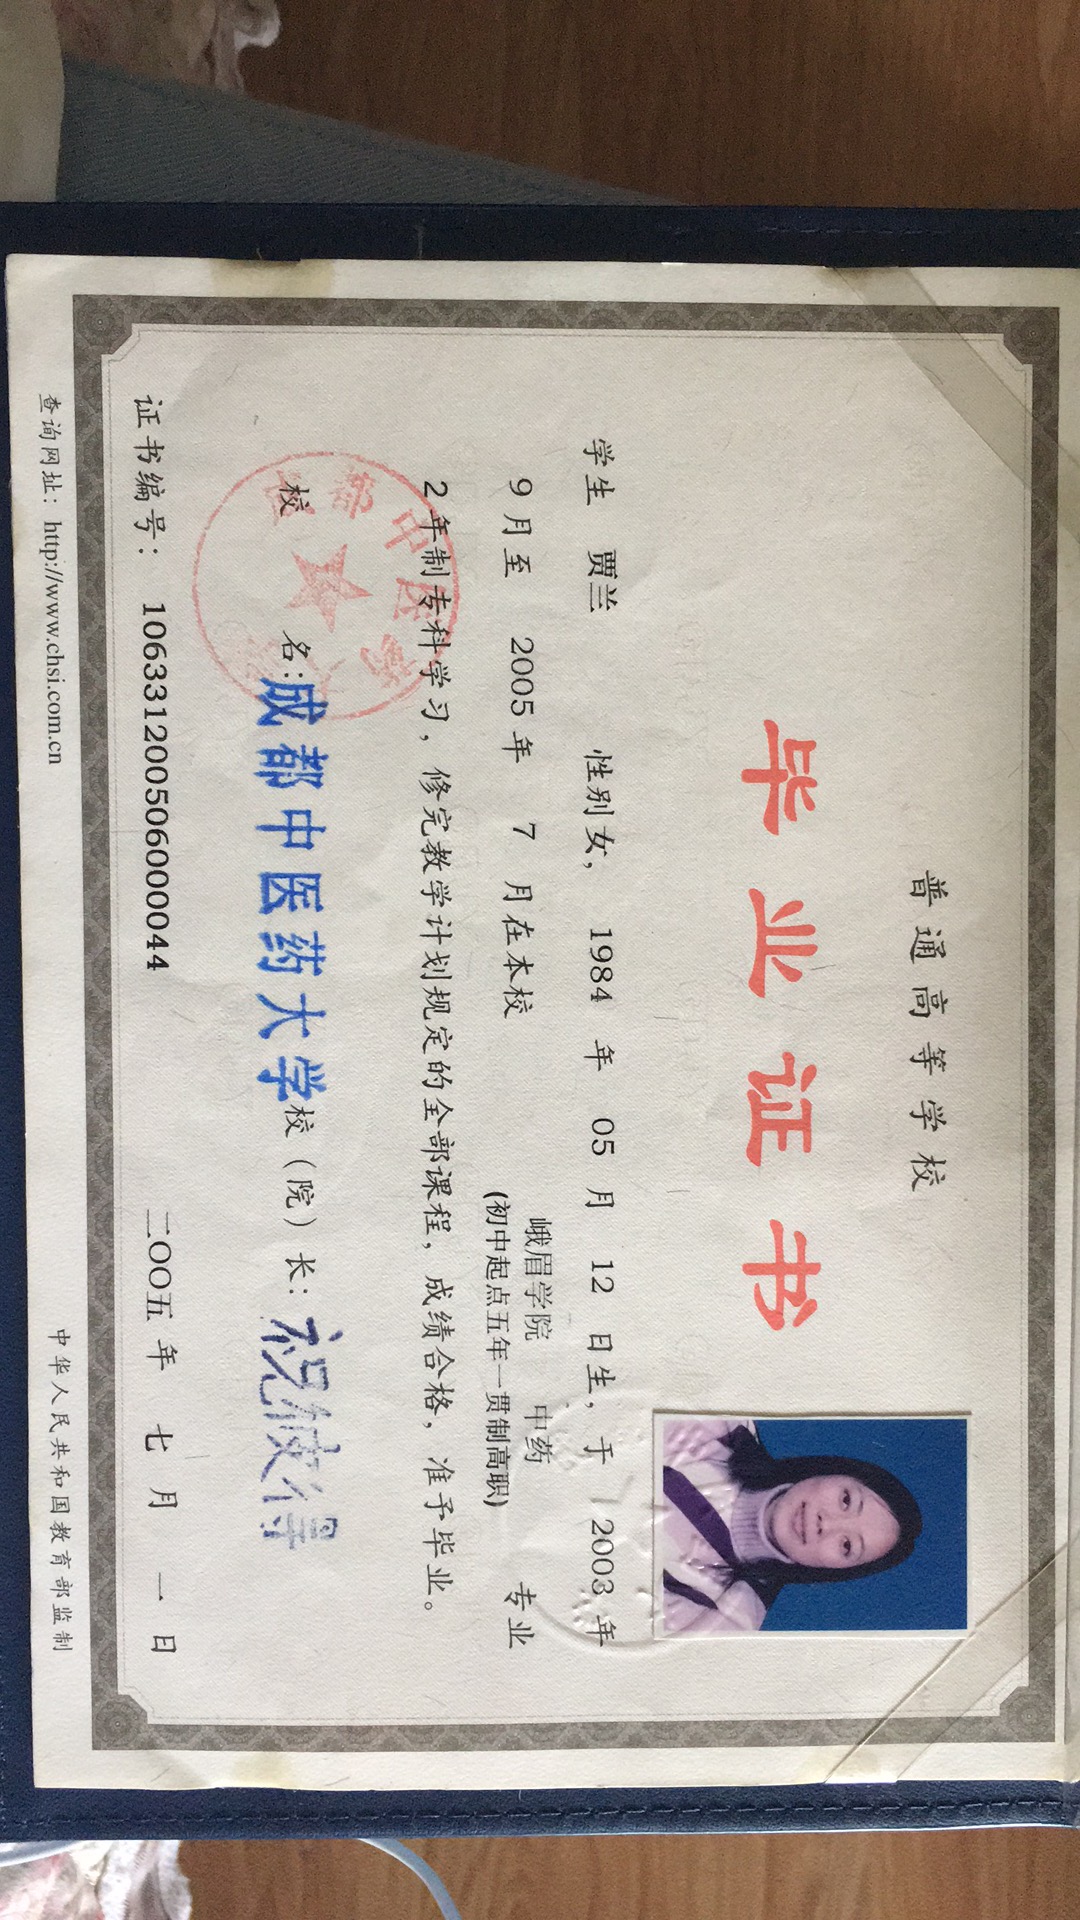 普通高等学校
毕业证书
学生 贾兰 性别女, 1984 年 05 月 12 日生, 于 2003 年
9 月至 2005 年 7 月在本校 峨眉学院 中药 专业
(初中起点五年一贯制高职)
2 年制专科学习, 修完教学计划规定的全部课程, 成绩合格, 准予毕业。
校 名: 成都中医药大学 校（院）长: 祝彼得
证书编号: 106331200506000044 二〇〇五 年 七 月 一 日
查询网址: http://www.chsi.com.cn 中华人民共和国教育部监制